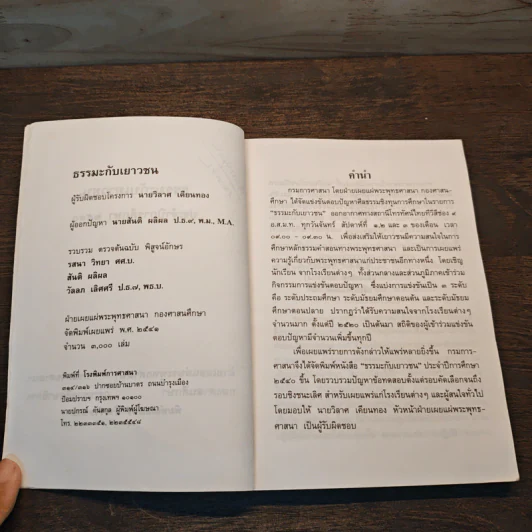 ธรรมะกับเยาวชน
ผู้รับผิดชอบโครงการ นายวิลาศ เคียนทอง
ผู้ออกปัญหา นายสันติ ผลิผล ป.ธ.๙, พ.ม., M.A.
รวบรวม ตรวจต้นฉบับ พิสูจน์อักษร
รสนา วิทยา ศศ.บ.
สันติ ผลิผล
วัลลภ เลิศศรี ป.ธ.๗, พธ.บ.
ฝ่ายเผยแผ่พระพุทธศาสนา กองศาสนศึกษา
จัดพิมพ์เผยแพร่ พ.ศ. ๒๕๔๑
จำนวน ๓,๐๐๐ เล่ม
พิมพ์ที่ โรงพิมพ์การศาสนา
๓๑๔/๓๑๖ ปากซอยบ้านบาตร ถนนบำรุงเมือง
ป้อมปราบฯ กรุงเทพฯ ๑๐๑๐๐
นายปกรณ์ ตันสกุล ผู้พิมพ์ผู้โฆษณา
โทร. ๒๒๓๓๓๕๑, ๒๒๓๕๕๔๘
คำนำ
กรมการศาสนา โดยฝ่ายเผยแผ่พระพุทธศาสนา กองศาสน-
ศึกษา ได้จัดแข่งขันตอบปัญหาศีลธรรมเชิงทุนการศึกษาในรายการ
"ธรรมะกับเยาวชน" ออกอากาศทางสถานีโทรทัศน์ไทยทีวีสีช่อง ๙
อ.ส.ม.ท. ทุกวันจันทร์ สัปดาห์ที่ ๑,๒ และ ๓ ของเดือน เวลา
๐๙.๐๐ - ๐๙.๓๐ น. เพื่อส่งเสริมให้เยาวชนมีความสนใจในการ
ศึกษาหลักธรรมคำสอนทางพระพุทธศาสนา และเป็นการเผยแพร่
ความรู้เกี่ยวกับพระพุทธศาสนาแก่ประชาชนอีกทางหนึ่ง โดยเชิญ
นักเรียน จากโรงเรียนต่างๆ ทั้งส่วนกลางและส่วนภูมิภาคเข้าร่วม
กิจกรรมการแข่งขันตอบปัญหา ซึ่งแบ่งการแข่งขันเป็น ๓ ระดับ
คือ ระดับประถมศึกษา ระดับมัธยมศึกษาตอนต้น และระดับมัธยม
ศึกษาตอนปลาย ปรากฏว่าได้รับความสนใจจากโรงเรียนต่างๆ
จำนวนมาก ตั้งแต่ปี ๒๕๒๐ เป็นต้นมา สถิติของผู้เข้าร่วมแข่งขัน
ตอบปัญหามีจำนวนเพิ่มขึ้นทุกปี
เพื่อเผยแพร่รายการดังกล่าวให้แพร่หลายยิ่งขึ้น กรมการ-
ศาสนาจึงได้จัดพิมพ์หนังสือ "ธรรมะกับเยาวชน" ประจำปีการศึกษา
๒๕๔๐ ขึ้น โดยรวบรวมปัญหาข้อทดสอบตั้งแต่รอบคัดเลือกจนถึง
รอบชิงชนะเลิศ สำหรับเผยแพร่แก่โรงเรียนต่างๆ และผู้สนใจทั่วไป
โดยมอบให้ นายวิลาศ เคียนทอง หัวหน้าฝ่ายเผยแผ่พระพุทธ-
ศาสนา เป็นผู้รับผิดชอบ